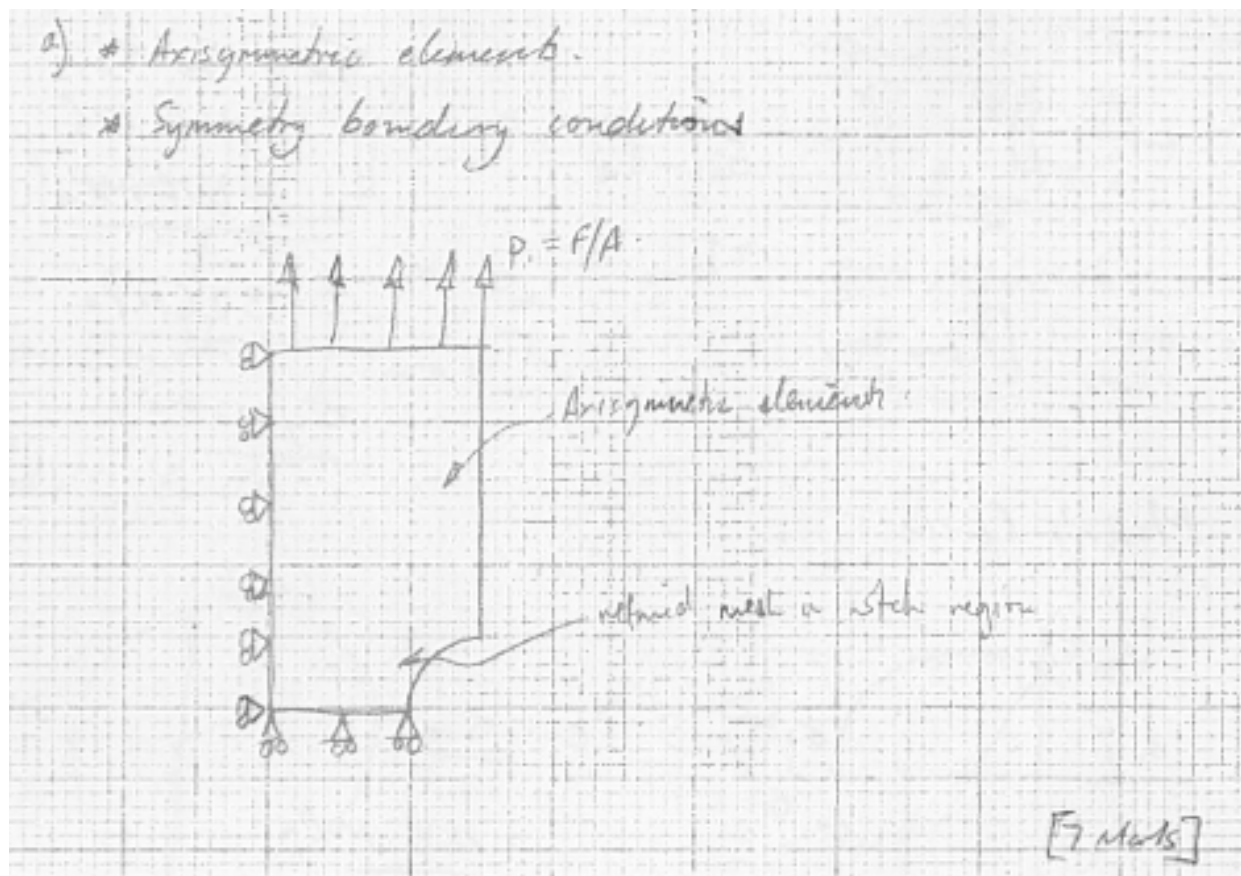 a) * Axisymmetric elements.
* Symmetry boundary conditions
P. = F/A
Axisymmetric elements.
refined mesh in notch region
[7 Marks]